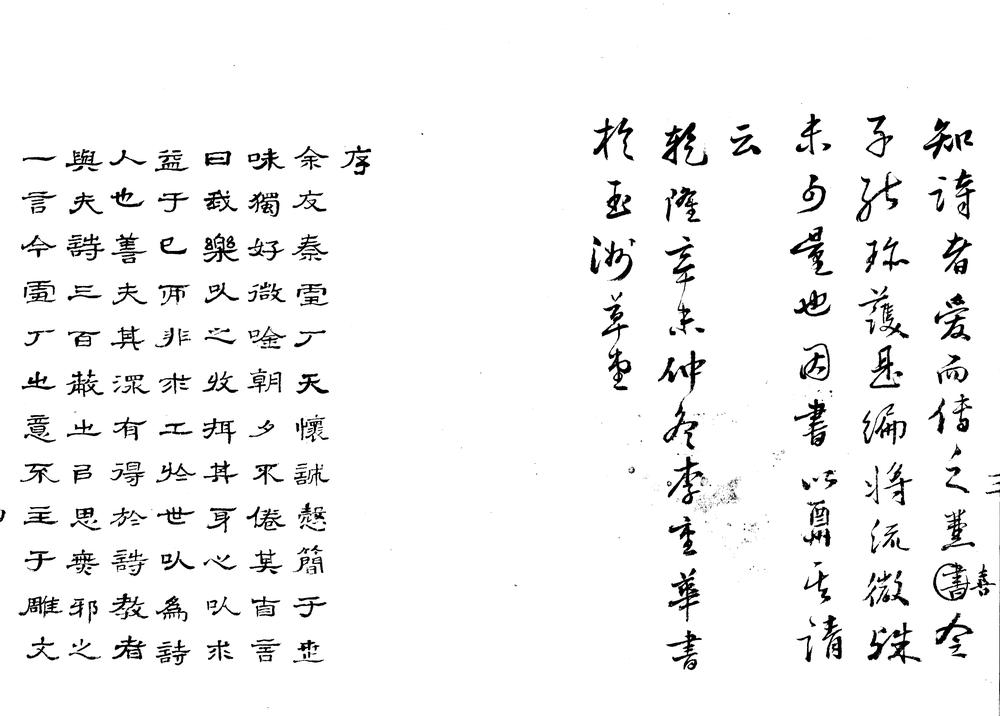 知詩者愛而傳之書喜令
子能珎護是編將流徽殊
未可量也因書以酬其請
云
乾隆辛未仲冬李重華書
於玉洲草堂
三
序
余友秦丁天懷誠慤簡于世
味獨好微唫朝夕不倦其自言
曰我樂以之收弭其耳心以求
益于己而非求工於世以為詩
人也善夫其深有得於詩教者
與夫詩三百蔽之曰思無邪之
一言今丁之意不主于雕文